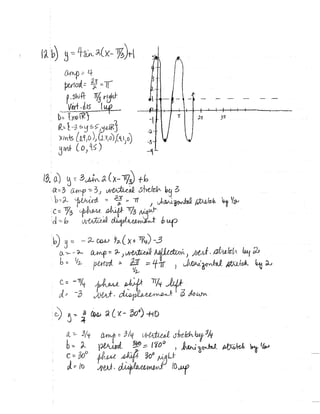 12 b) y = 4 sin 2(x - π/3) + 1
amp = 4
period = 2π/2 = π
p. shift π/3 right
Vert. dis 1 up
D = {x∈R}
R = {-3 ≤ y ≤ 5, y∈R}
y int (0,
5
π 2π 3π
-4
13. a) y = 3 sin 2(x - π/3) + 6
a=3 amp = 3, vertical stretch by 3
b=2 period = 2π/2 = π, horizontal stretch by 1/2
c = π/3 phase shift π/3 right
d = 6 vertical displacement 6 up
b) y = -2 cos 1/2 (x + π/4) - 3
a = -2 amp = 2, vertical reflection, vert. stretch by 2
b = 1/2 period = 2π/½ = 4π, horizontal stretch by 2
c = -π/4 phase shift π/4 left
d = -3 vert. displacement 3 down
c) y = 3/4 cos 2(x - 30°) + 10
a = 3/4 amp = 3/4 vertical stretch by 3/4
b = 2 period 360/2 = 180°, horizontal stretch by 1/2
c = 30° phase shift 30° right
d = 10 vert. displacement 10 up